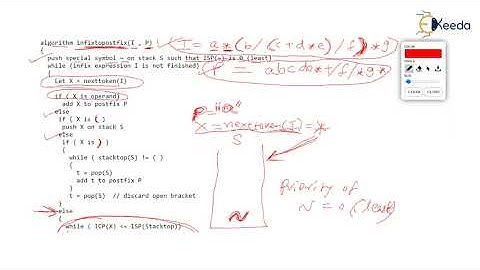 Ekeeda
algorithm infixtopostfix(I , P)
{
push special symbol ~ on stack S such that ISP(~) is 0 (least)
while (infix expression I is not finished)
{
Let X = nexttoken(I)
if ( X is operand)
add X to postfix P
else
if ( X is ( )
push X on stack S
else
if ( X is ) )
{
while ( stacktop(S) != ( )
{
t = pop(S)
add t to postfix P
}
t = pop(S) // discard open bracket
}
else
{
while ( ICP(X) <= ISP(Stacktop))
I = a*(b/(c+d*e)/f)*g
P = abcde*+/f/*g*
P = "a"
X = nexttoken(I) = *
S
~
Priority of
~ = 0 (least)
CLEAR